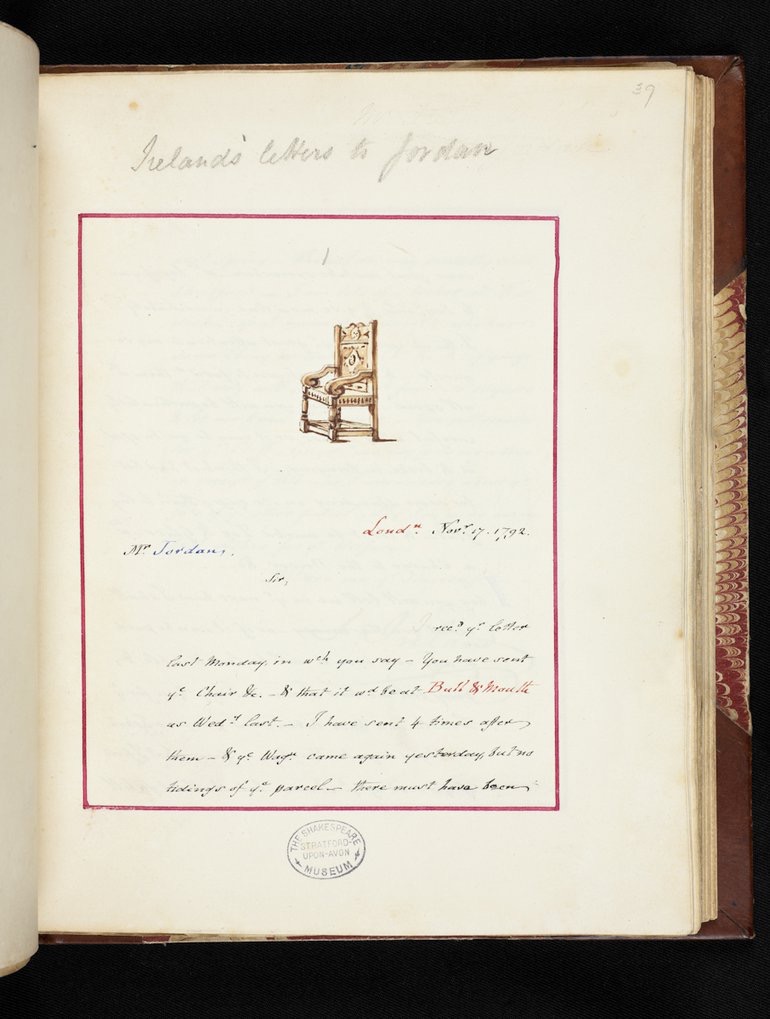 37
Ireland's letters to Jordan
1
Londn. Novr. 17. 1792.
Mr Jordan,
Sir,
I recd. yr letter
last Monday, in wch you say – You have sent
ye. Chair &c. – & that it wd be at Bull & Mouth
as Wedy last. – I have sent 4 times after
them – & ye. Wagn. came again yesterday, but no
tidings of ye. parcel – there must have been
THE SHAKESPEARE
STRATFORD-
UPON-AVON
MUSEUM